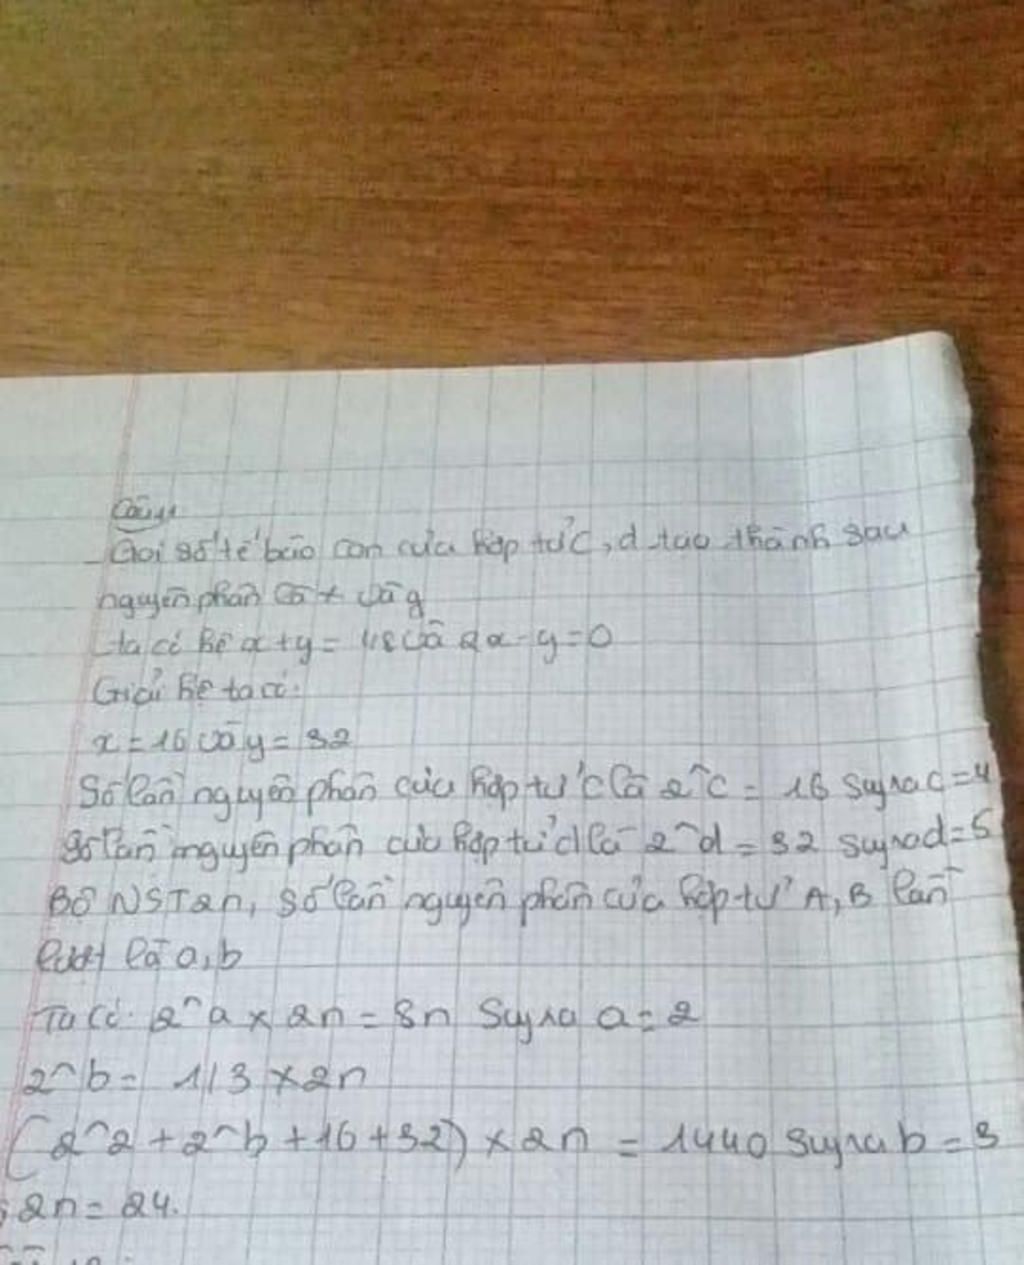 Câu 4
Gọi số tế bào con của hợp tử C, d tạo thành sau
nguyên phân là x và y
ta có hệ x+y = 48 và 2x - y = 0
Giải hệ ta có:
x = 16 và y = 32
Số lần nguyên phân của hợp tử c là 2^c = 16 suy ra c = 4
Số lần nguyên phân của hợp tử d là 2^d = 32 suy ra d = 5
Bộ NST 2n, số lần nguyên phân của hợp tử A, B lần
lượt là a, b
Ta có: 2^a x 2n = 8n suy ra a = 2
2^b = 1/3 x 2n
(2^2 + 2^b + 16 + 32) x 2n = 1440 suy ra b = 3
2n = 24.